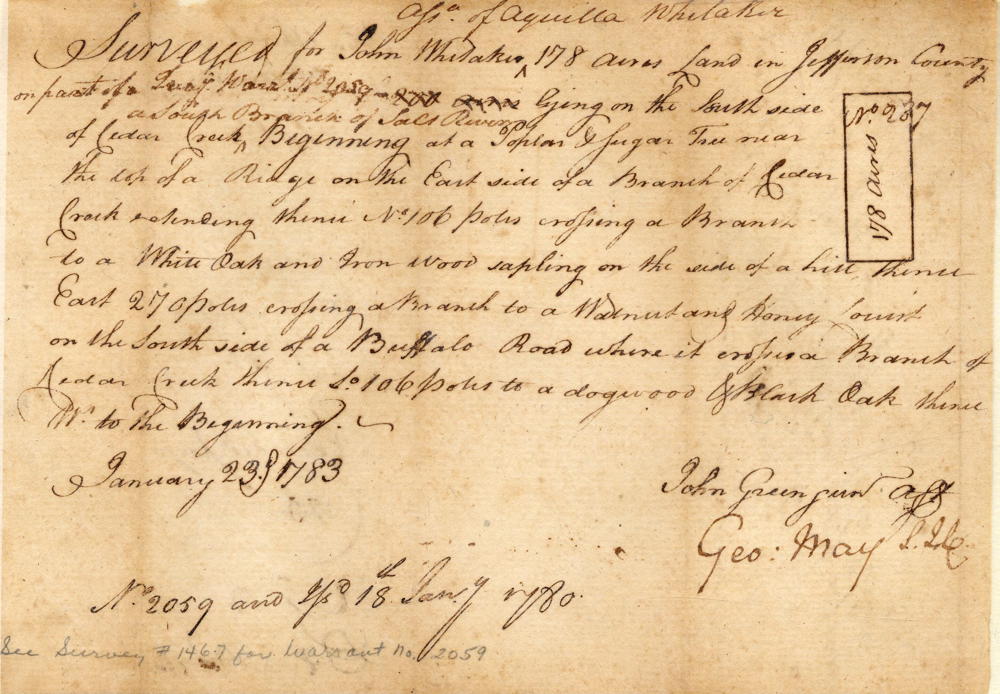 Asse. of Aquilla Whitaker
Surveyed for John Whitaker 178 acres Land in Jefferson County
on part of a Treay. Warrt. No. 2059 200 acres Lying on the South side
a South Branch of Salt River
of Cedar Creek ^ Beginning at a Poplar & Sugar Tree near
the top of a Ridge on the East side of a Branch of Cedar
Creek extending thence No. 106 poles crossing a Branch
to a White Oak and Iron wood sapling on the side of a hill thence
East 270 poles crossing a Branch to a Walnut and Honey Locust
on the South side of a Buffalo Road where it crosses a Branch of
Cedar Creek thence So. 106 poles to a dogwood & Black Oak thence
Wt. to the Beginning.
No. 237
178 acres
January 23d 1783
John Greenjun Asst
Geo: May S.J.C.
No. 2059 and Isd 18th Jany 1780.
See Survey # 1467 for Warrant no. 2059